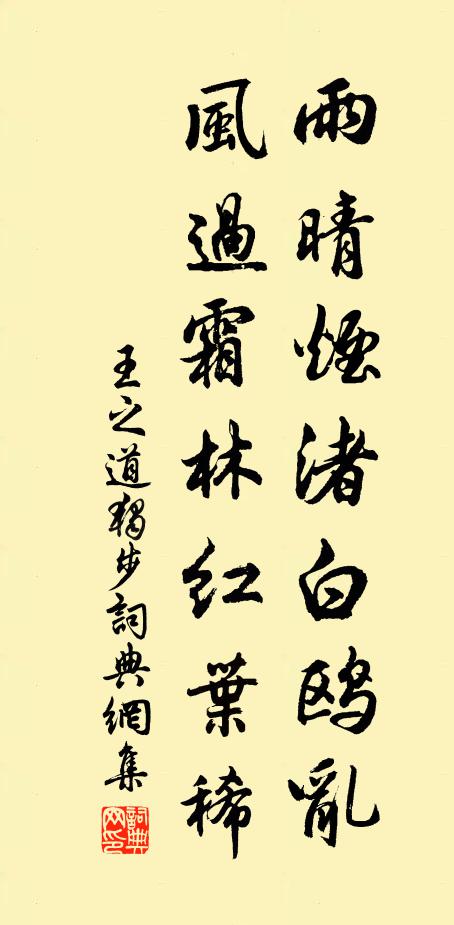 雨晴煙渚白鸥亂
風過霜林紅葉稀
王之道獨步詞典網集
詞典網印